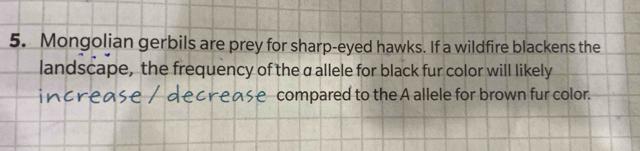 5. Mongolian gerbils are prey for sharp-eyed hawks. If a wildfire blackens the
landscape, the frequency of the a allele for black fur color will likely
increase / decrease compared to the A allele for brown fur color.